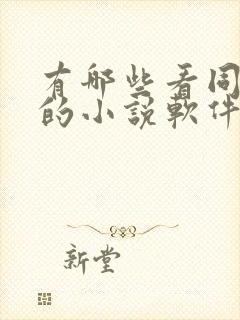 有哪些看同
的小說軟件
新堂